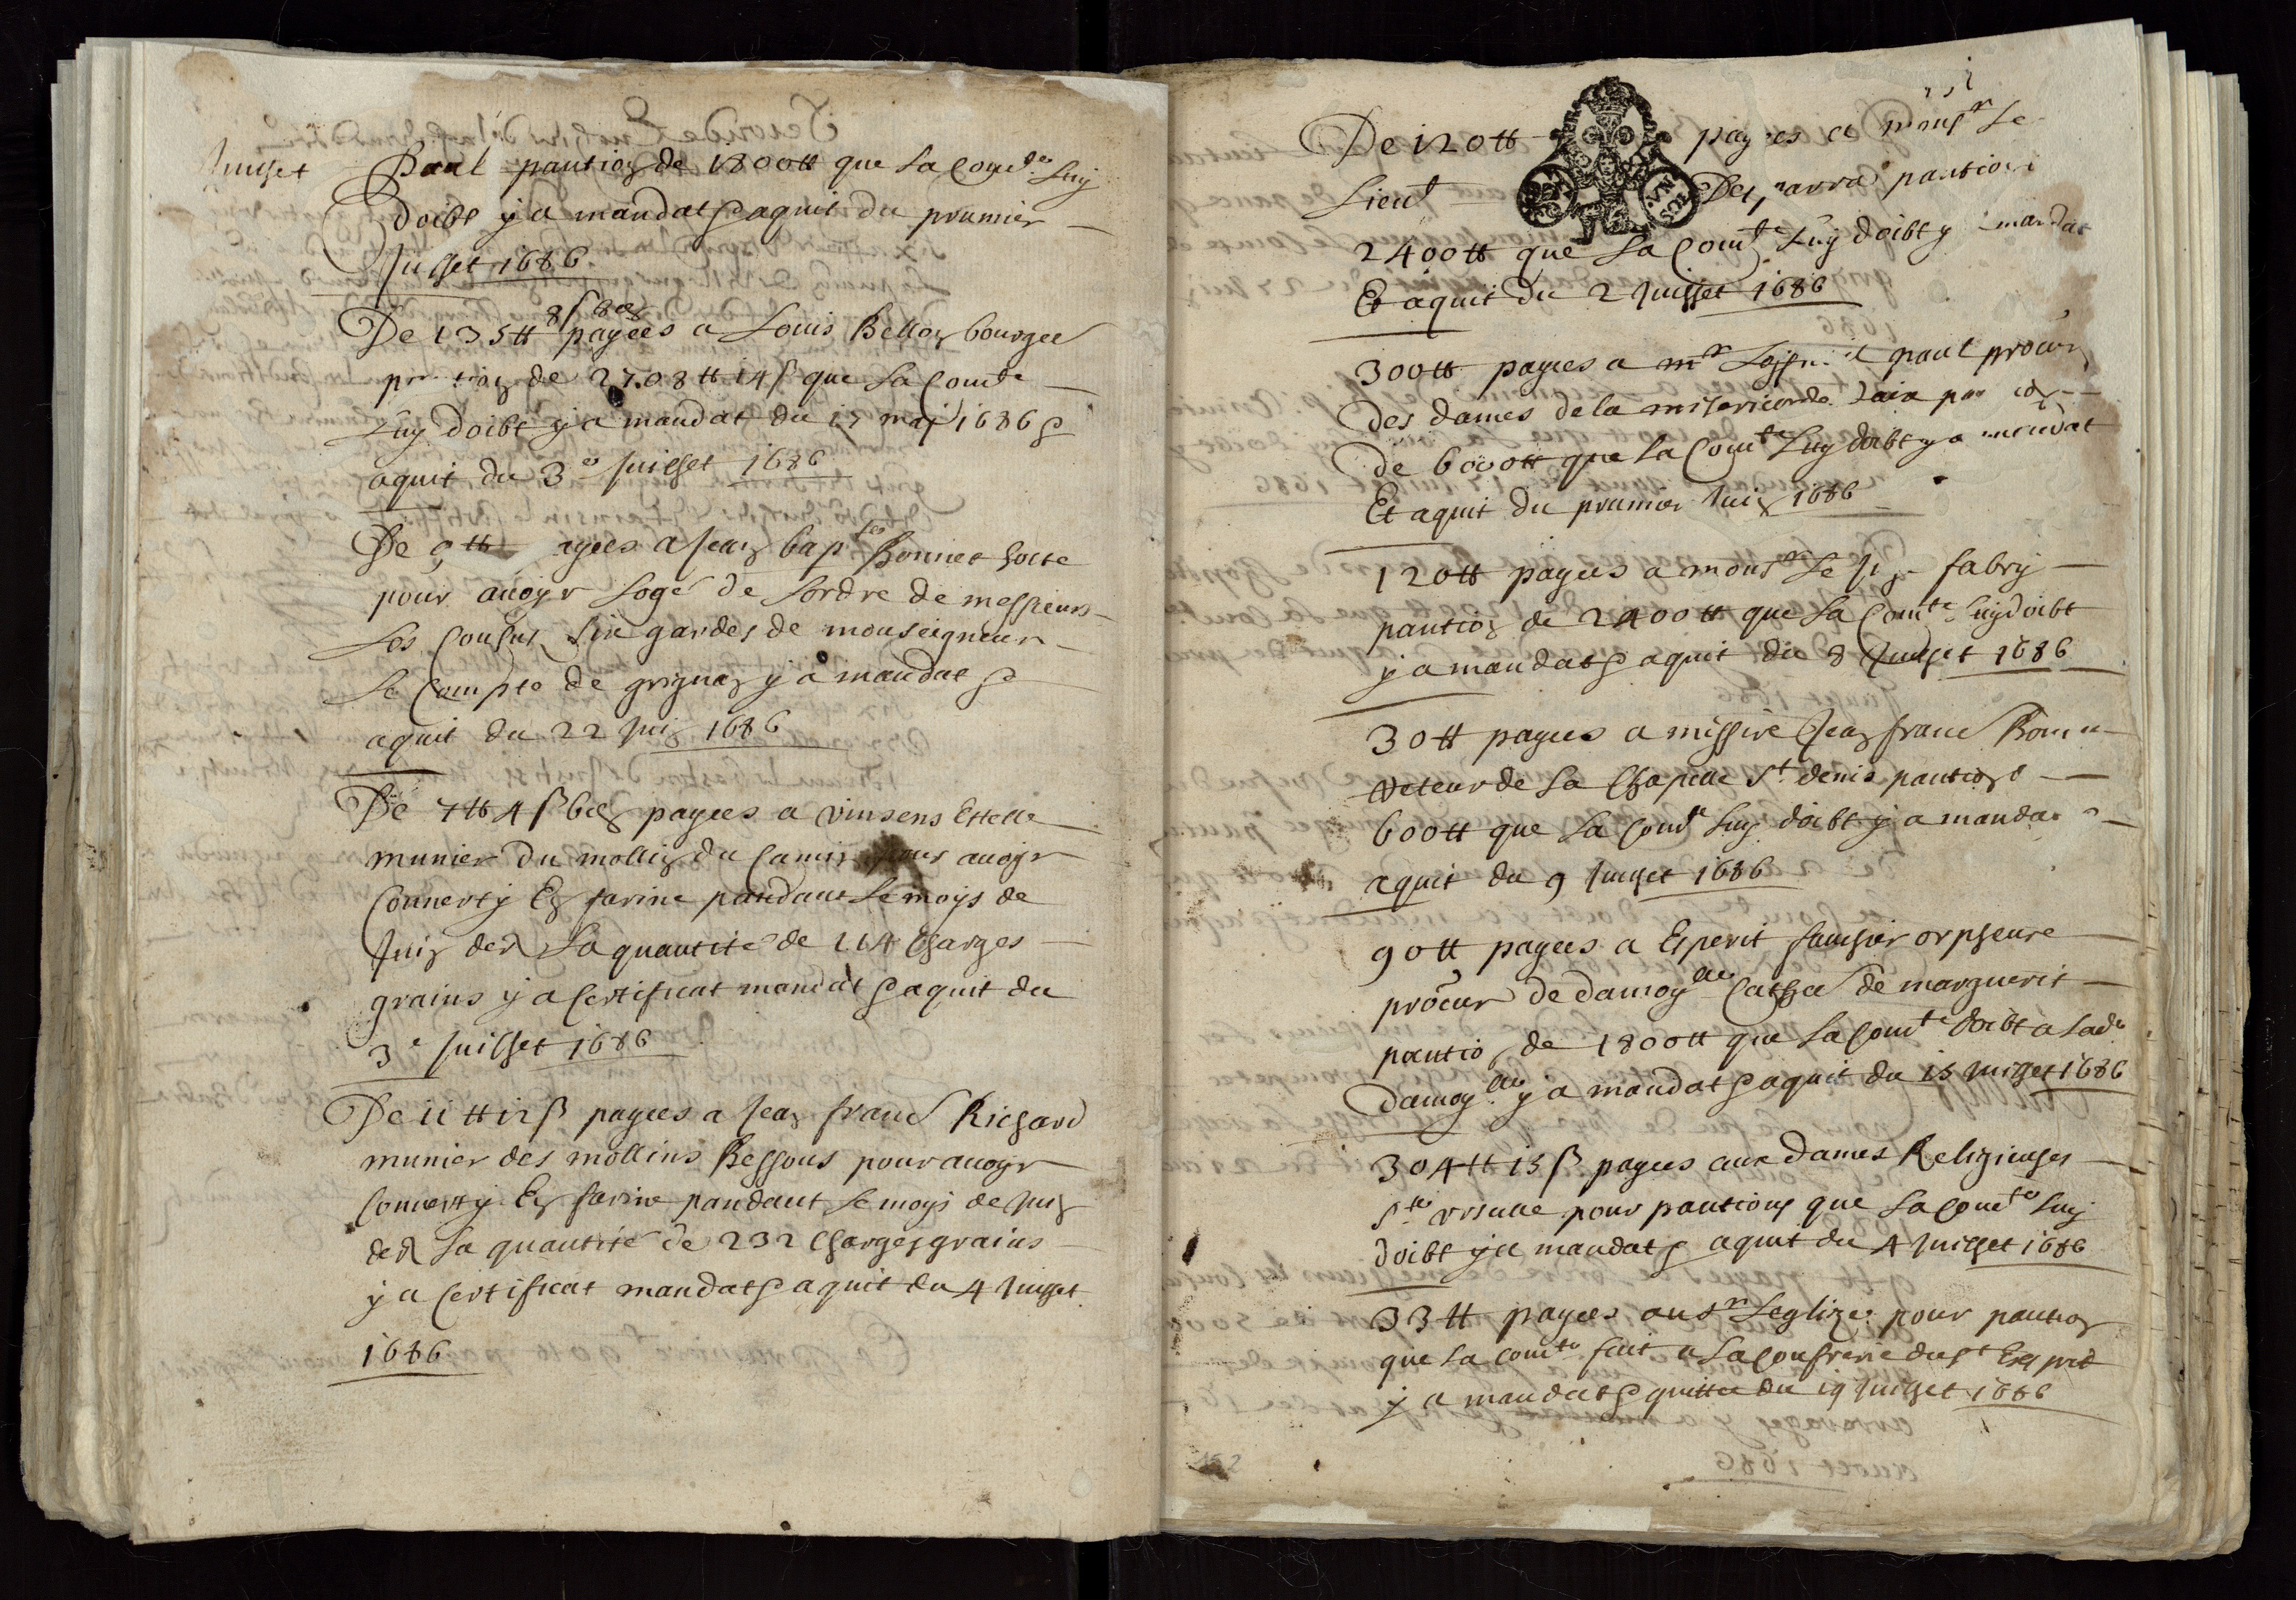 Juillet
Paul pantion de 1800 ₶ que la Com.te luy
doibt y a mandat & aquit du prumier
Juillet 1686
8ſ 8d
De 135₶ payées a Louis Bellon bourgeo
de 2708₶ 14ſ que la Com.te
luy doibt y a mandat du 15 may 1686 &
aquit du 3e Juillet 1686
De 9₶ ayees a Jean bapte Bonnet hoste
pour avoyr logé de lordre de messieurs
les Consuls six gardes de monseigneur
le Compte de grignan y a mandat &
aquit du 22 Juin 1686
De 7₶ 4ſ 6d payees a vinsens Estelle
munier du mollin du Camin pour avoyr
Converty En farine pandant le moys de
Juin der la quantité de 114 Charges
grains y a Certificat mandat & aquit du
3e Juillet 1686
De 11₶ 12ſ payees a Jean franc Richard
munier des mollins Bessons pour avoyr
Converty En farine pandant le moys de Juin
der la quantité de 232 Charges grains
y a Certificat mandat & aquit du 4 Juillet
1686
De 120₶ payees a monsr le
Lieut pantion
2400₶ que la Com.te luy doibt y mandat
Et aquit du 2 Juillet 1686
300₶ payees a mr paul procur
des dames de la misericorde daix
de 6000₶ que la Com.te luy doibt y a mandat
Et aquit du prumier Juin 1686
120₶ payees a monsr le fabry
pantion de 2400₶ que la Com.te luy doibt
y a mandat & aquit du 8 Juillet 1686
30₶ payees a missire Jean franc
Reteur de la Chapelle St denis pantion d
600₶ que la Com.te luy doibt y a manda
aquit du 9 Juillet 1686
90₶ payees a Esperit fauchier orpheure
procur de damoylle Cathe de marguerit
pantio de 1800₶ que la Com.te doibt a lade
damoylle y a mandat & aquit du 15 Juillet 1686
304₶ 15ſ payees aux dames Religieuses
Ste vrsulle pour pantions que la Com.te luy
doibt y a mandat & aquit du 4 Juillet 1686
33₶ payees au Sr Leglize pour pantion
que la Com.te fait a la Confrerie du St Esprit
y a mandat & quittce du 19 Juillet 1686